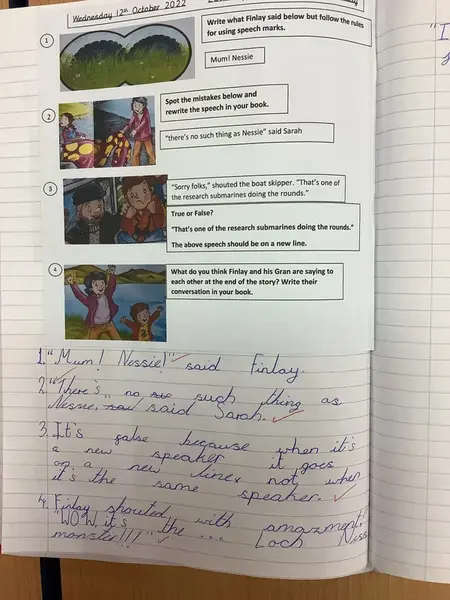 Wednesday 12th October 2022
1
Write what Finlay said below but follow the rules
for using speech marks.
Mum! Nessie
2
Spot the mistakes below and
rewrite the speech in your book.
"there's no such thing as Nessie" said Sarah
3
"Sorry folks," shouted the boat skipper. "That's one of
the research submarines doing the rounds."
True or False?
"That's one of the research submarines doing the rounds."
The above speech should be on a new line.
4
What do you think Finlay and his Gran are saying to
each other at the end of the story? Write their
conversation in your book.
1. "Mum! Nessie!" said Finlay.
2. "There's no such thing as
Nessie," said Sarah.
3. It's false because when it's
a new speaker it goes
on a new line, not when
it's the same speaker.
4. Finlay shouted with amazment!
"WOW it's the ... Loch Niss
monster!!!"
"I